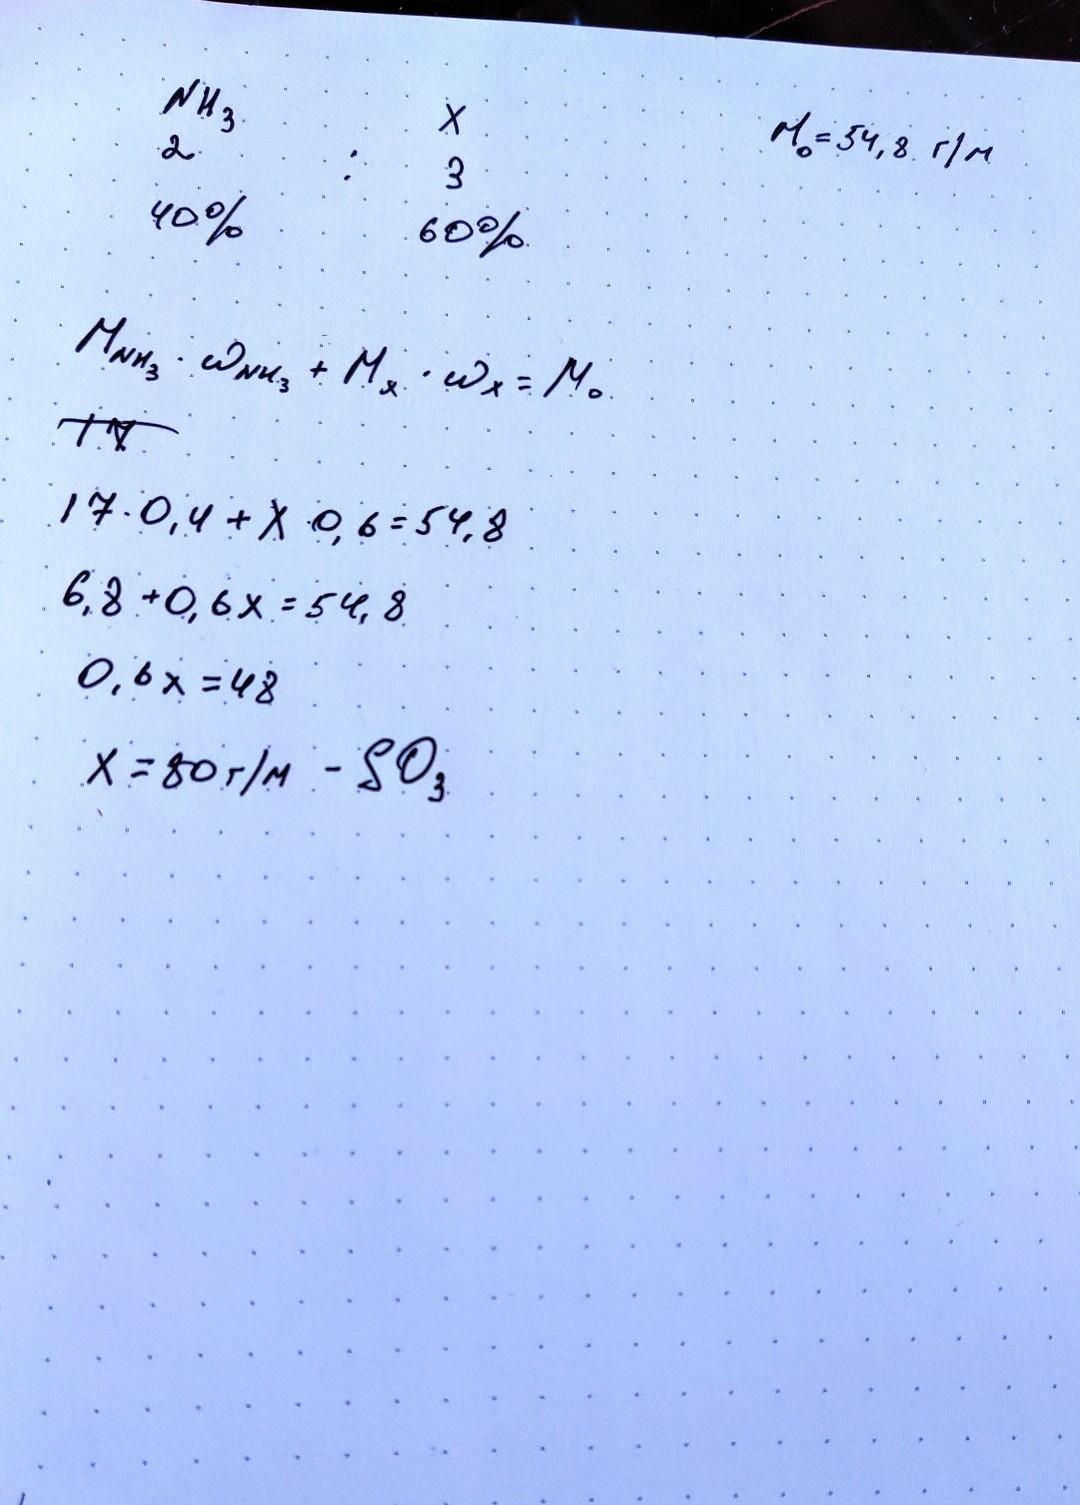 NH₃ X M₀=54,8 г/м
2 : 3
40% 60%
M_NH₃ · ω_NH₃ + Mₓ · ωₓ = M₀
17
17·0,4+X·0,6=54,8
6,8+0,6x=54,8
0,6x=48
X=80г/м - SO₃